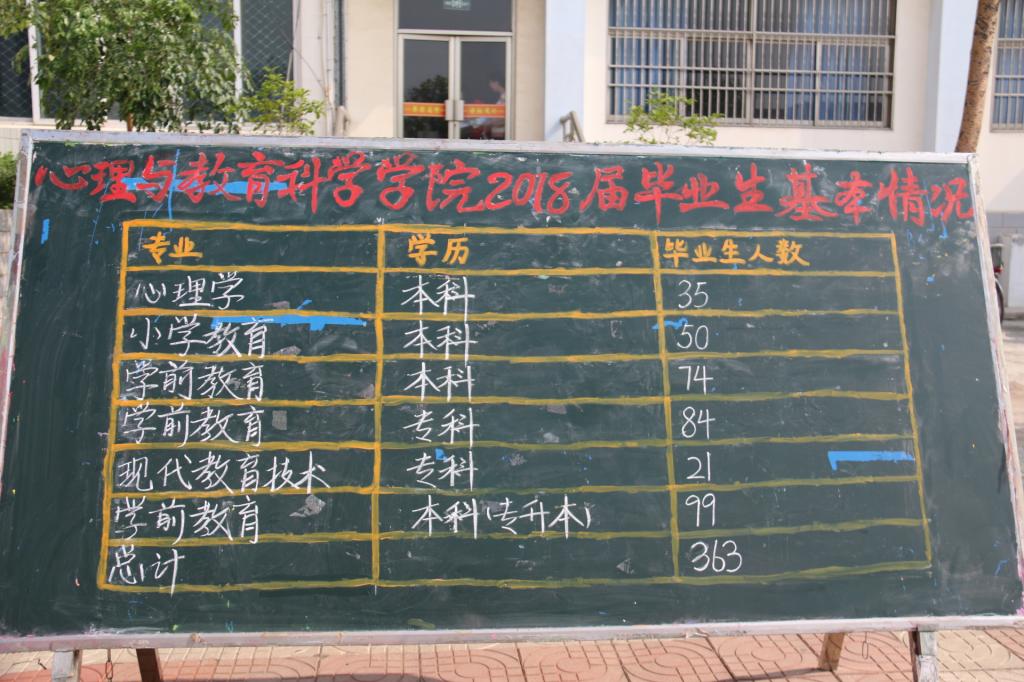 心理与教育科学学院2018届毕业生基本情况
专业 学历 毕业生人数
心理学 本科 35
小学教育 本科 50
学前教育 本科 74
学前教育 专科 84
现代教育技术 专科 21
学前教育 本科(专升本) 99
总计 363